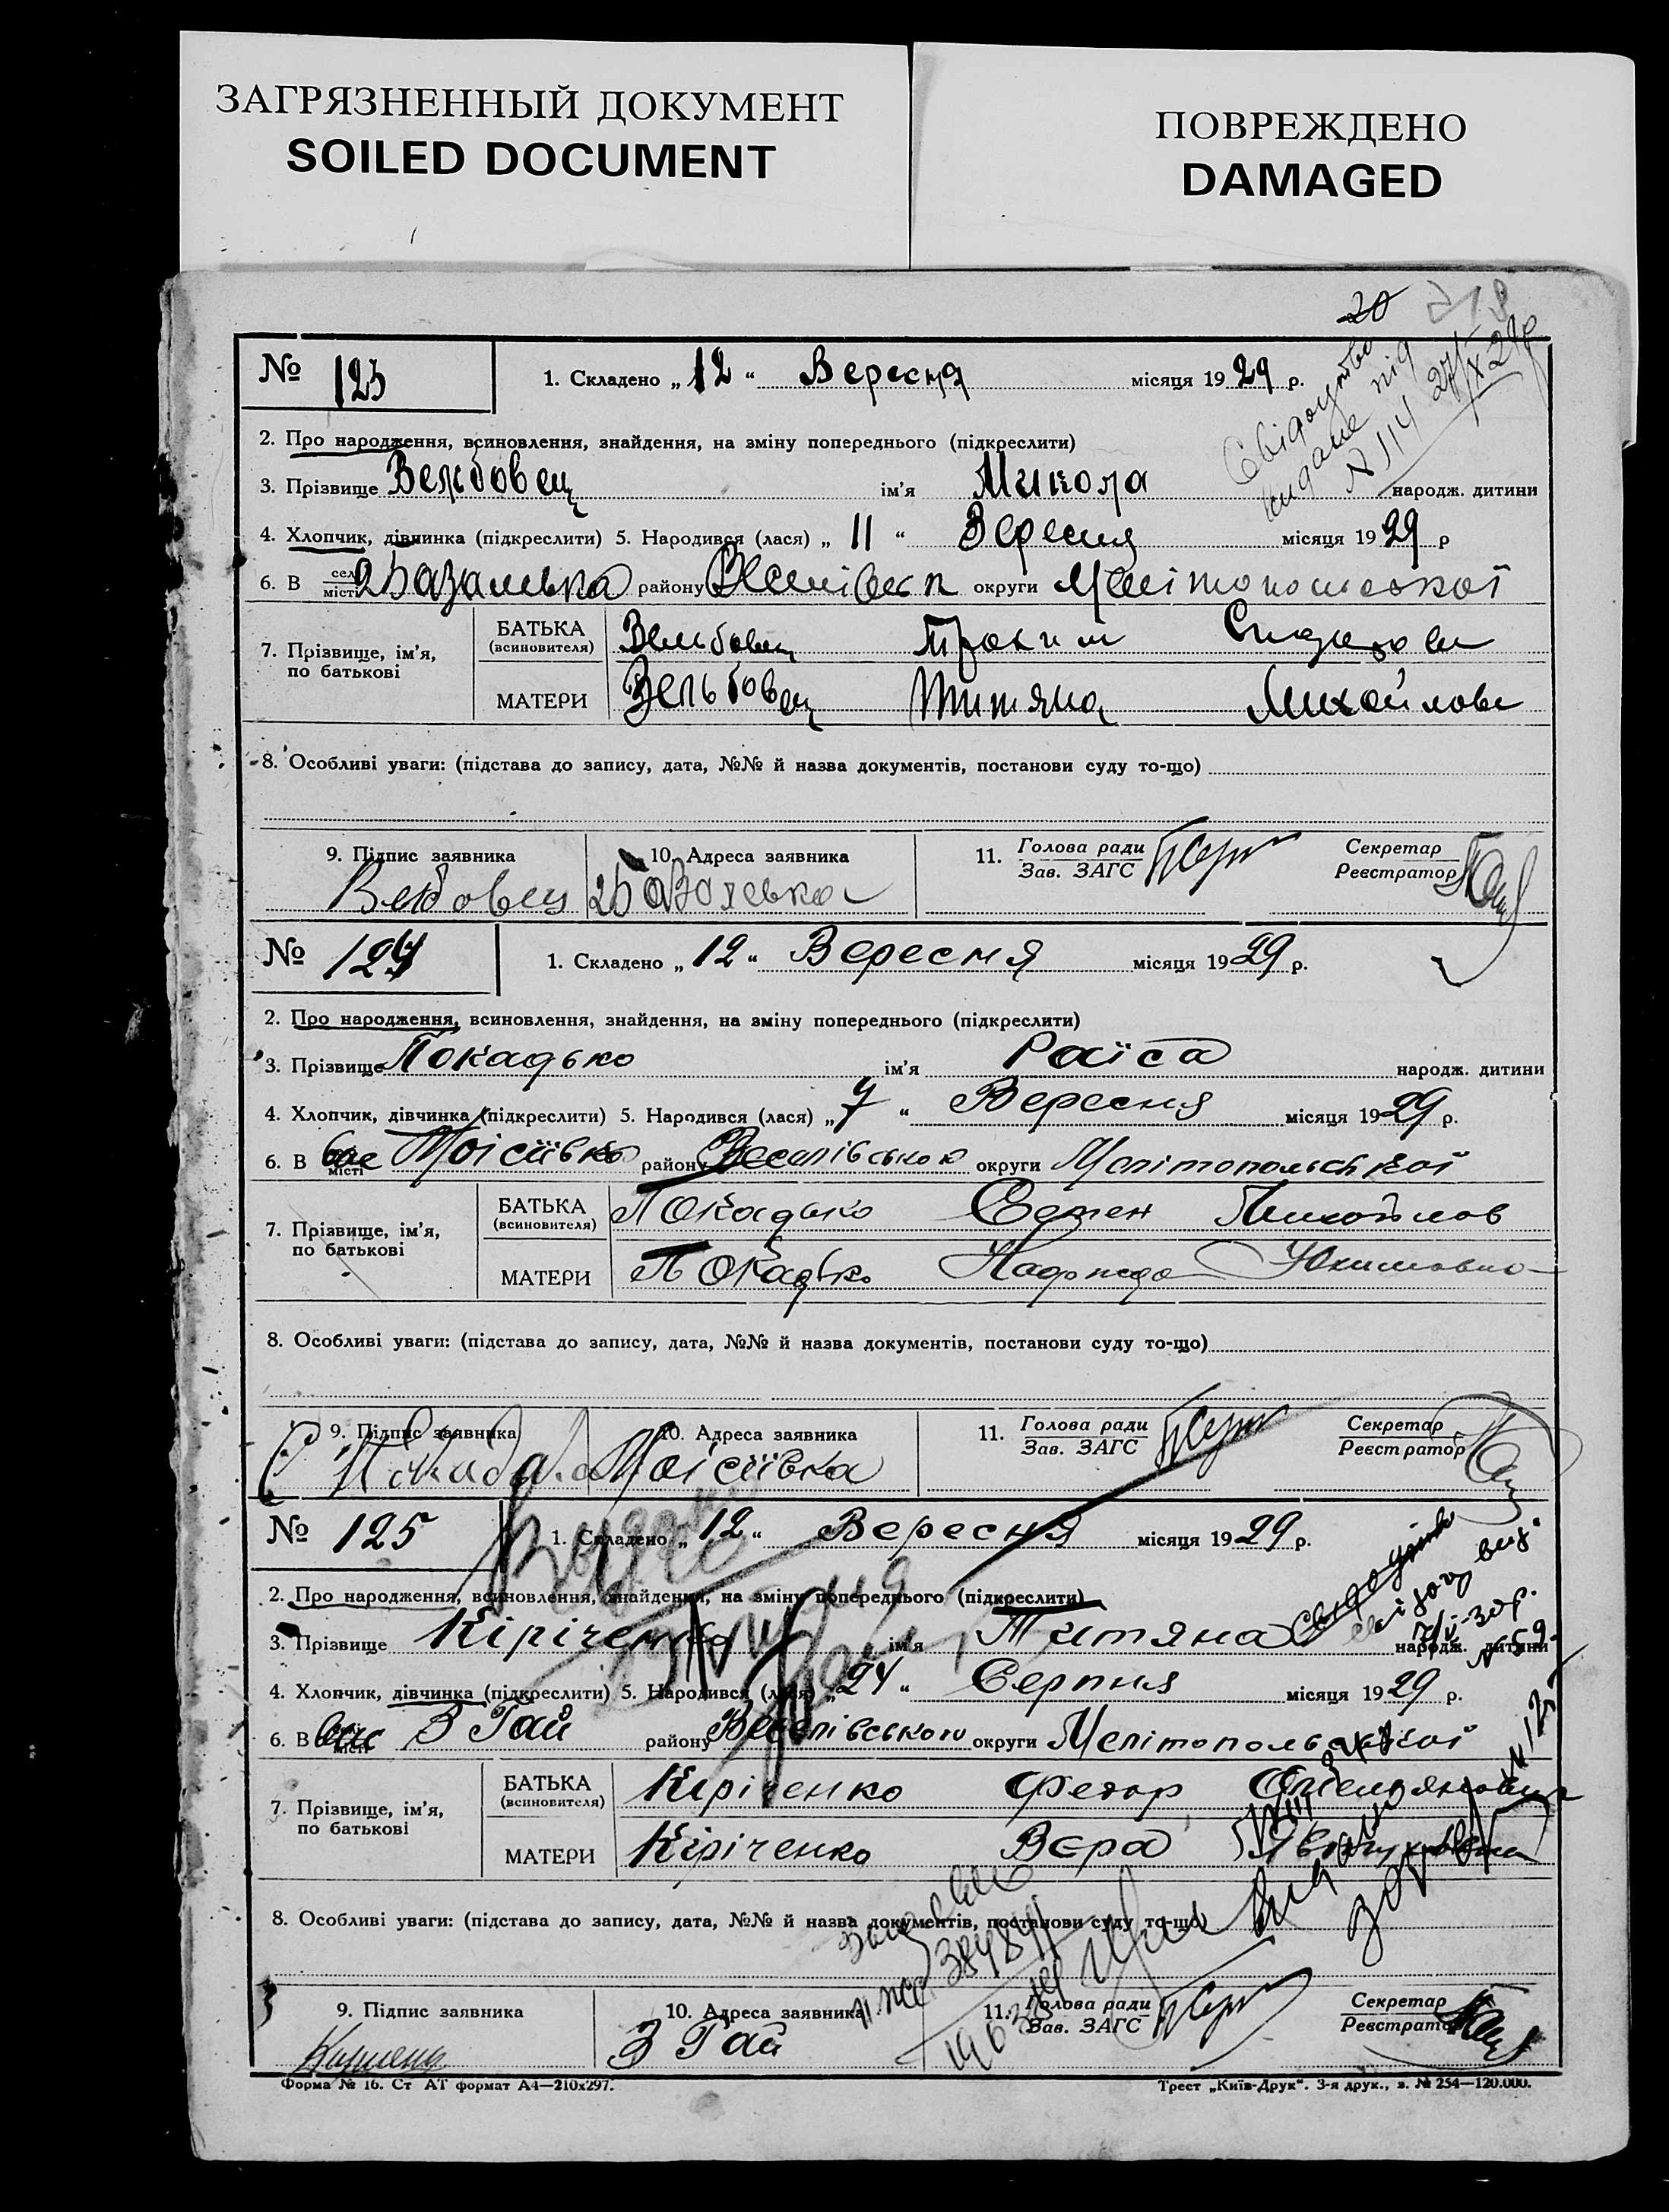 ЗАГРЯЗНЕННЫЙ ДОКУМЕНТ
SOILED DOCUMENT
ПОВРЕЖДЕНО
DAMAGED
20
№ 123 1. Складено „ 12 “ Вересня місяця 1929 р.
Свідоцтво видане під N 114
2. Про народження, всиновлення, знайдення, на зміну попереднього (підкреслити)
3. Прізвище Вельбовец ім’я Микола народж. дитини
4. Хлопчик, дівчинка (підкреслити) 5. Народився (лася) „ 11 “ Вересня місяця 1929 р
6. В місті району округи Мелітопольської
БАТЬКА (всиновителя) Вельбовец Трохим
7. Прізвище, ім’я, по батькові
МАТЕРИ Вельбовец Титяна Михайлове
8. Особливі уваги: (підстава до запису, дата, №№ й назва документів, постанови суду то-що)
9. Підпис заявника 10. Адреса заявника 11. Голова ради Зав. ЗАГС Секретар Реєстратор
№ 124 1. Складено „ 12 “ Вересня місяця 1929 р.
2. Про народження, всиновлення, знайдення, на зміну попереднього (підкреслити)
3. Прізвище Покадько ім’я Раїса народж. дитини
4. Хлопчик, дівчинка (підкреслити) 5. Народився (лася) „ 7 “ Вересня місяця 1929 р.
6. В місті Моісіївка району Веселівського округи Мелітопольської
БАТЬКА (всиновителя) Покадько Семен Михайлов
7. Прізвище, ім’я, по батькові
МАТЕРИ Покадько Надежда
8. Особливі уваги: (підстава до запису, дата, №№ й назва документів, постанови суду то-що)
9. Підпис заявника 10. Адреса заявника 11. Голова ради Зав. ЗАГС Секретар Реєстратор
Моісіївка
№ 125 1. Складено „ 12 “ Вересня місяця 1929 р.
2. Про народження, всиновлення, знайдення, на зміну попереднього (підкреслити)
3. Прізвище Кіріченко ім’я Титяна народж. дитини
4. Хлопчик, дівчинка (підкреслити) 5. Народився (лася) „ 24 “ Серпня місяця 1929 р.
6. В місті З Гай району Веселівського округи Мелітопольської
БАТЬКА (всиновителя) Кіріченко Федор
7. Прізвище, ім’я, по батькові
МАТЕРИ Кіріченко Вєра
8. Особливі уваги: (підстава до запису, дата, №№ й назва документів, постанови суду то-що)
9. Підпис заявника 10. Адреса заявника 11. Голова ради Зав. ЗАГС Секретар Реєстратор
З Гай
Форма № 16. Ст АТ формат А4—210х297.
Трест „Київ-Друк“. 3-я друк., з. № 254—120.000.